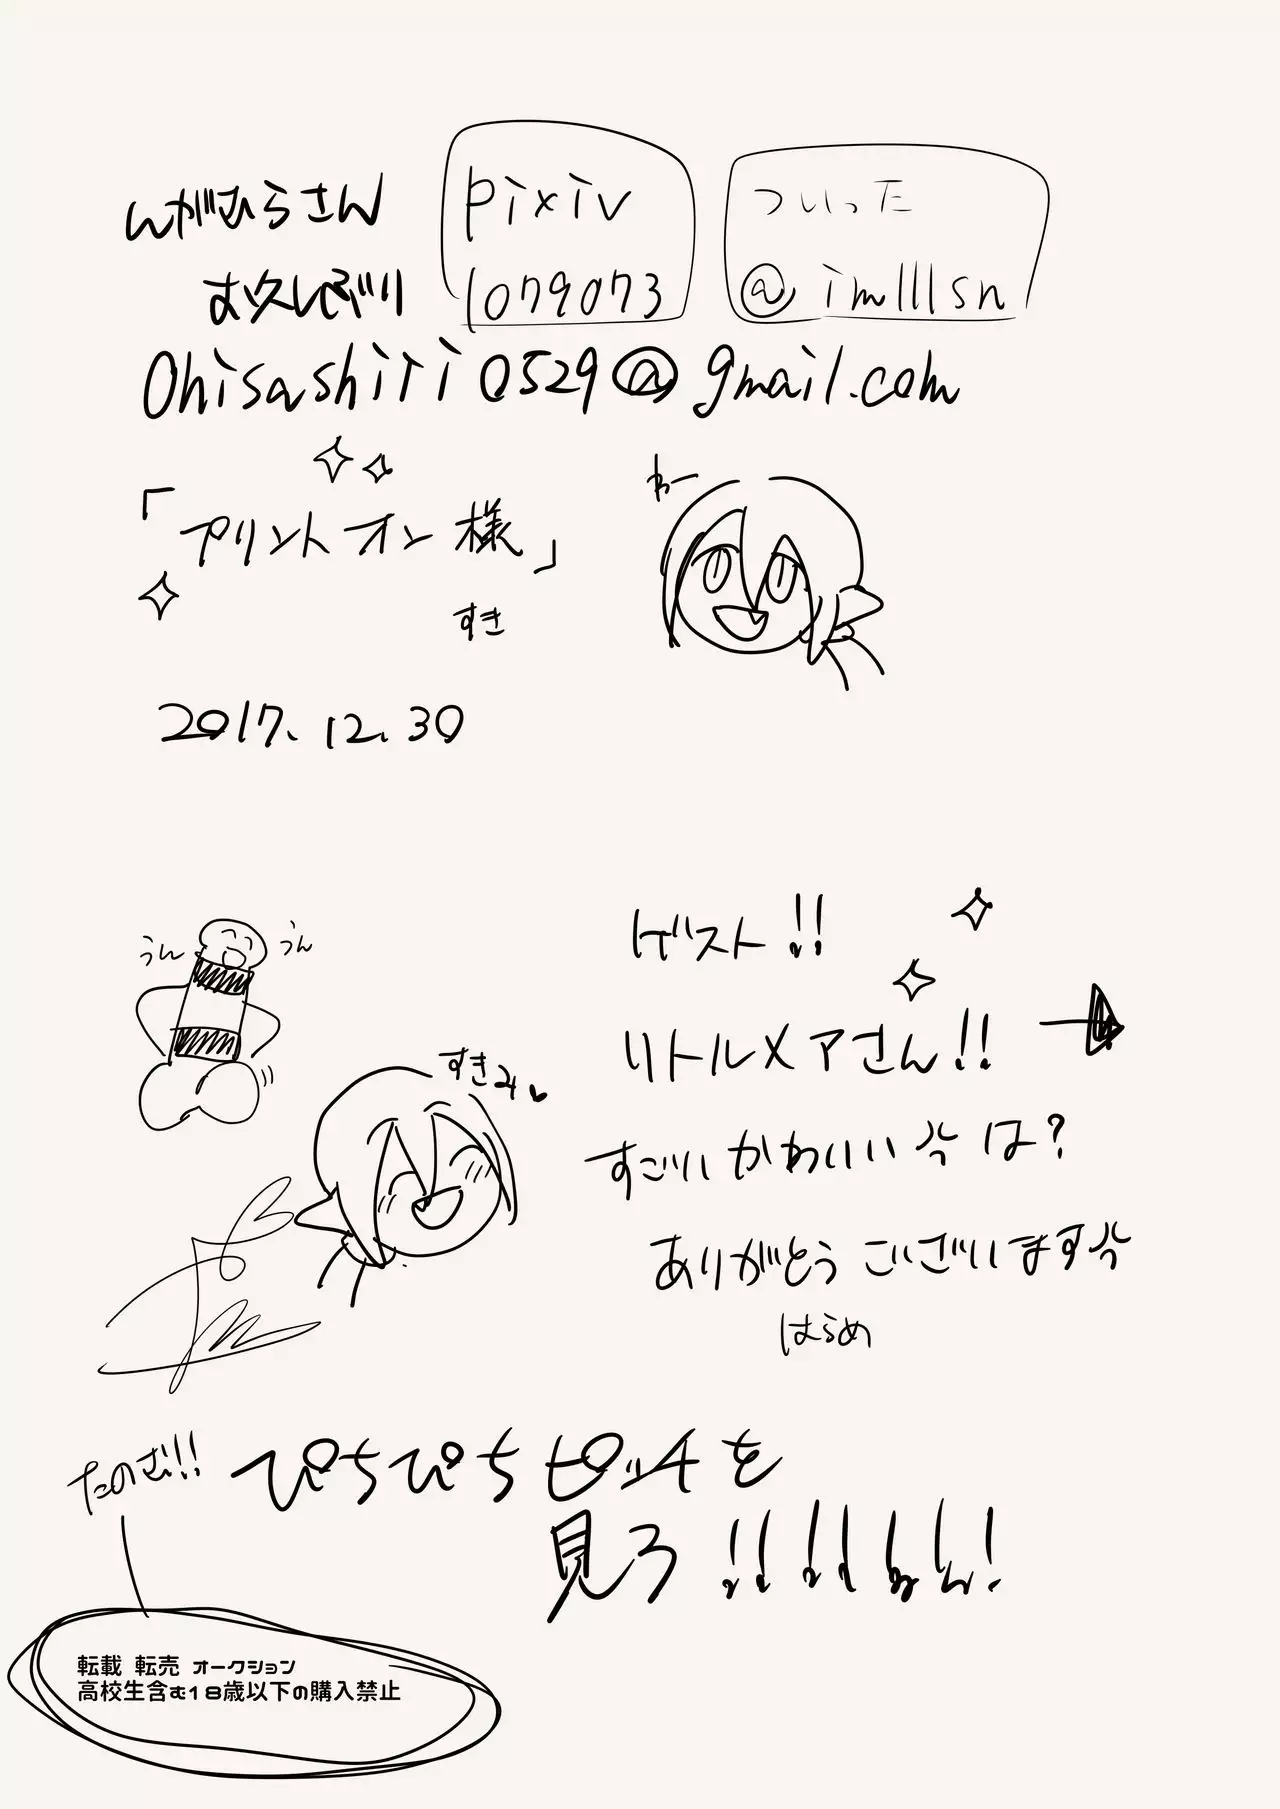 んがひらさん
pixiv
1079073
ついった
@imlllsn
お久しぶり
Ohisashiri0529@gmail.com
「プリントオン様」
すき
わー
2017.12.30
うん
うん
ゲスト!!
リトルメアさん!!
すきみ
すごいかわいい は?
ありがとうございます
はらめ
たのむ!!
ぴちぴちピッチを
見ろ!!!!
転載 転売 オークション
高校生含む18歳以下の購入禁止